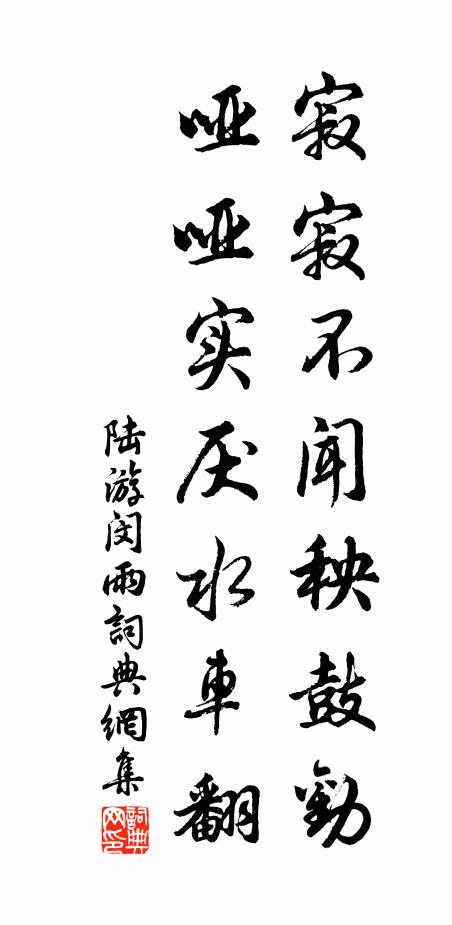 寂寂不闻秧鼓勸
哑哑实厌水車翻
陆游闵雨詞典網集
詞典网印